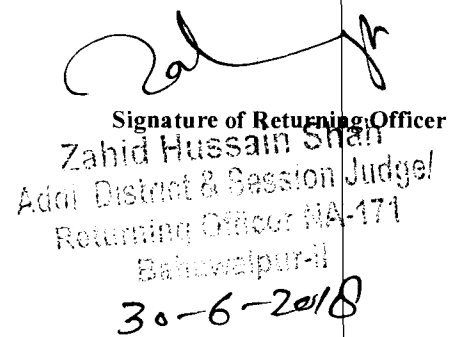 Signature of Returning Officer
Zahid Hussain Shah
Addl District & Session Judge/
Returning Officer NA-171
Bahawalpur-II
30-6-2018